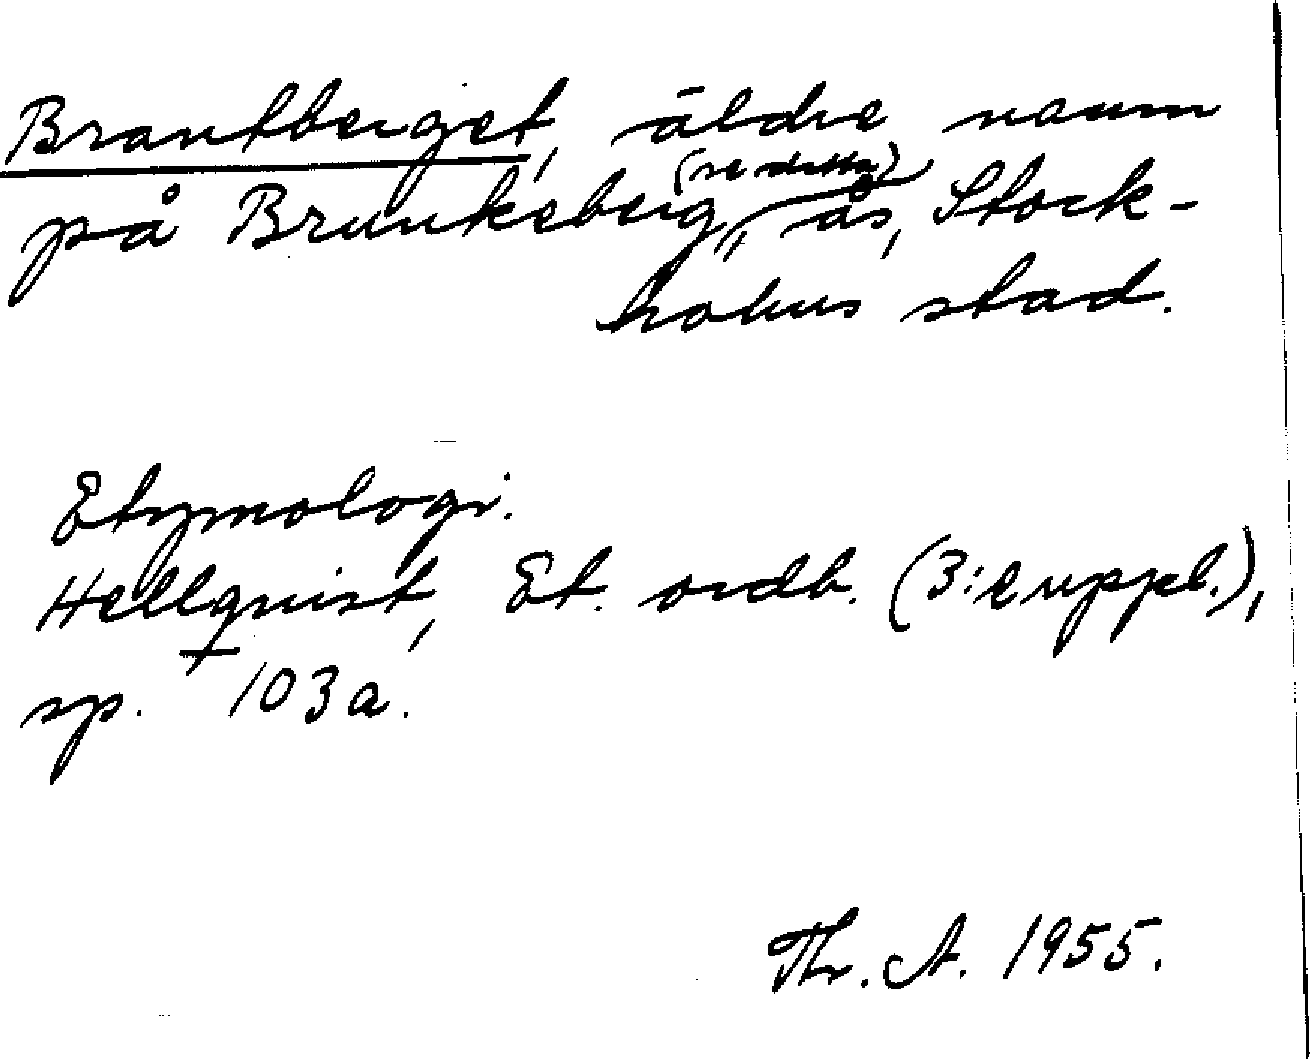 Brantberget, äldre namn
på Brunkeberg (se detta) ås, Stock-
holms stad.
Etymologi.
Hellquist, Et. ordb. (3:e uppl.),
sp. 103a.
Thr. A. 1955.